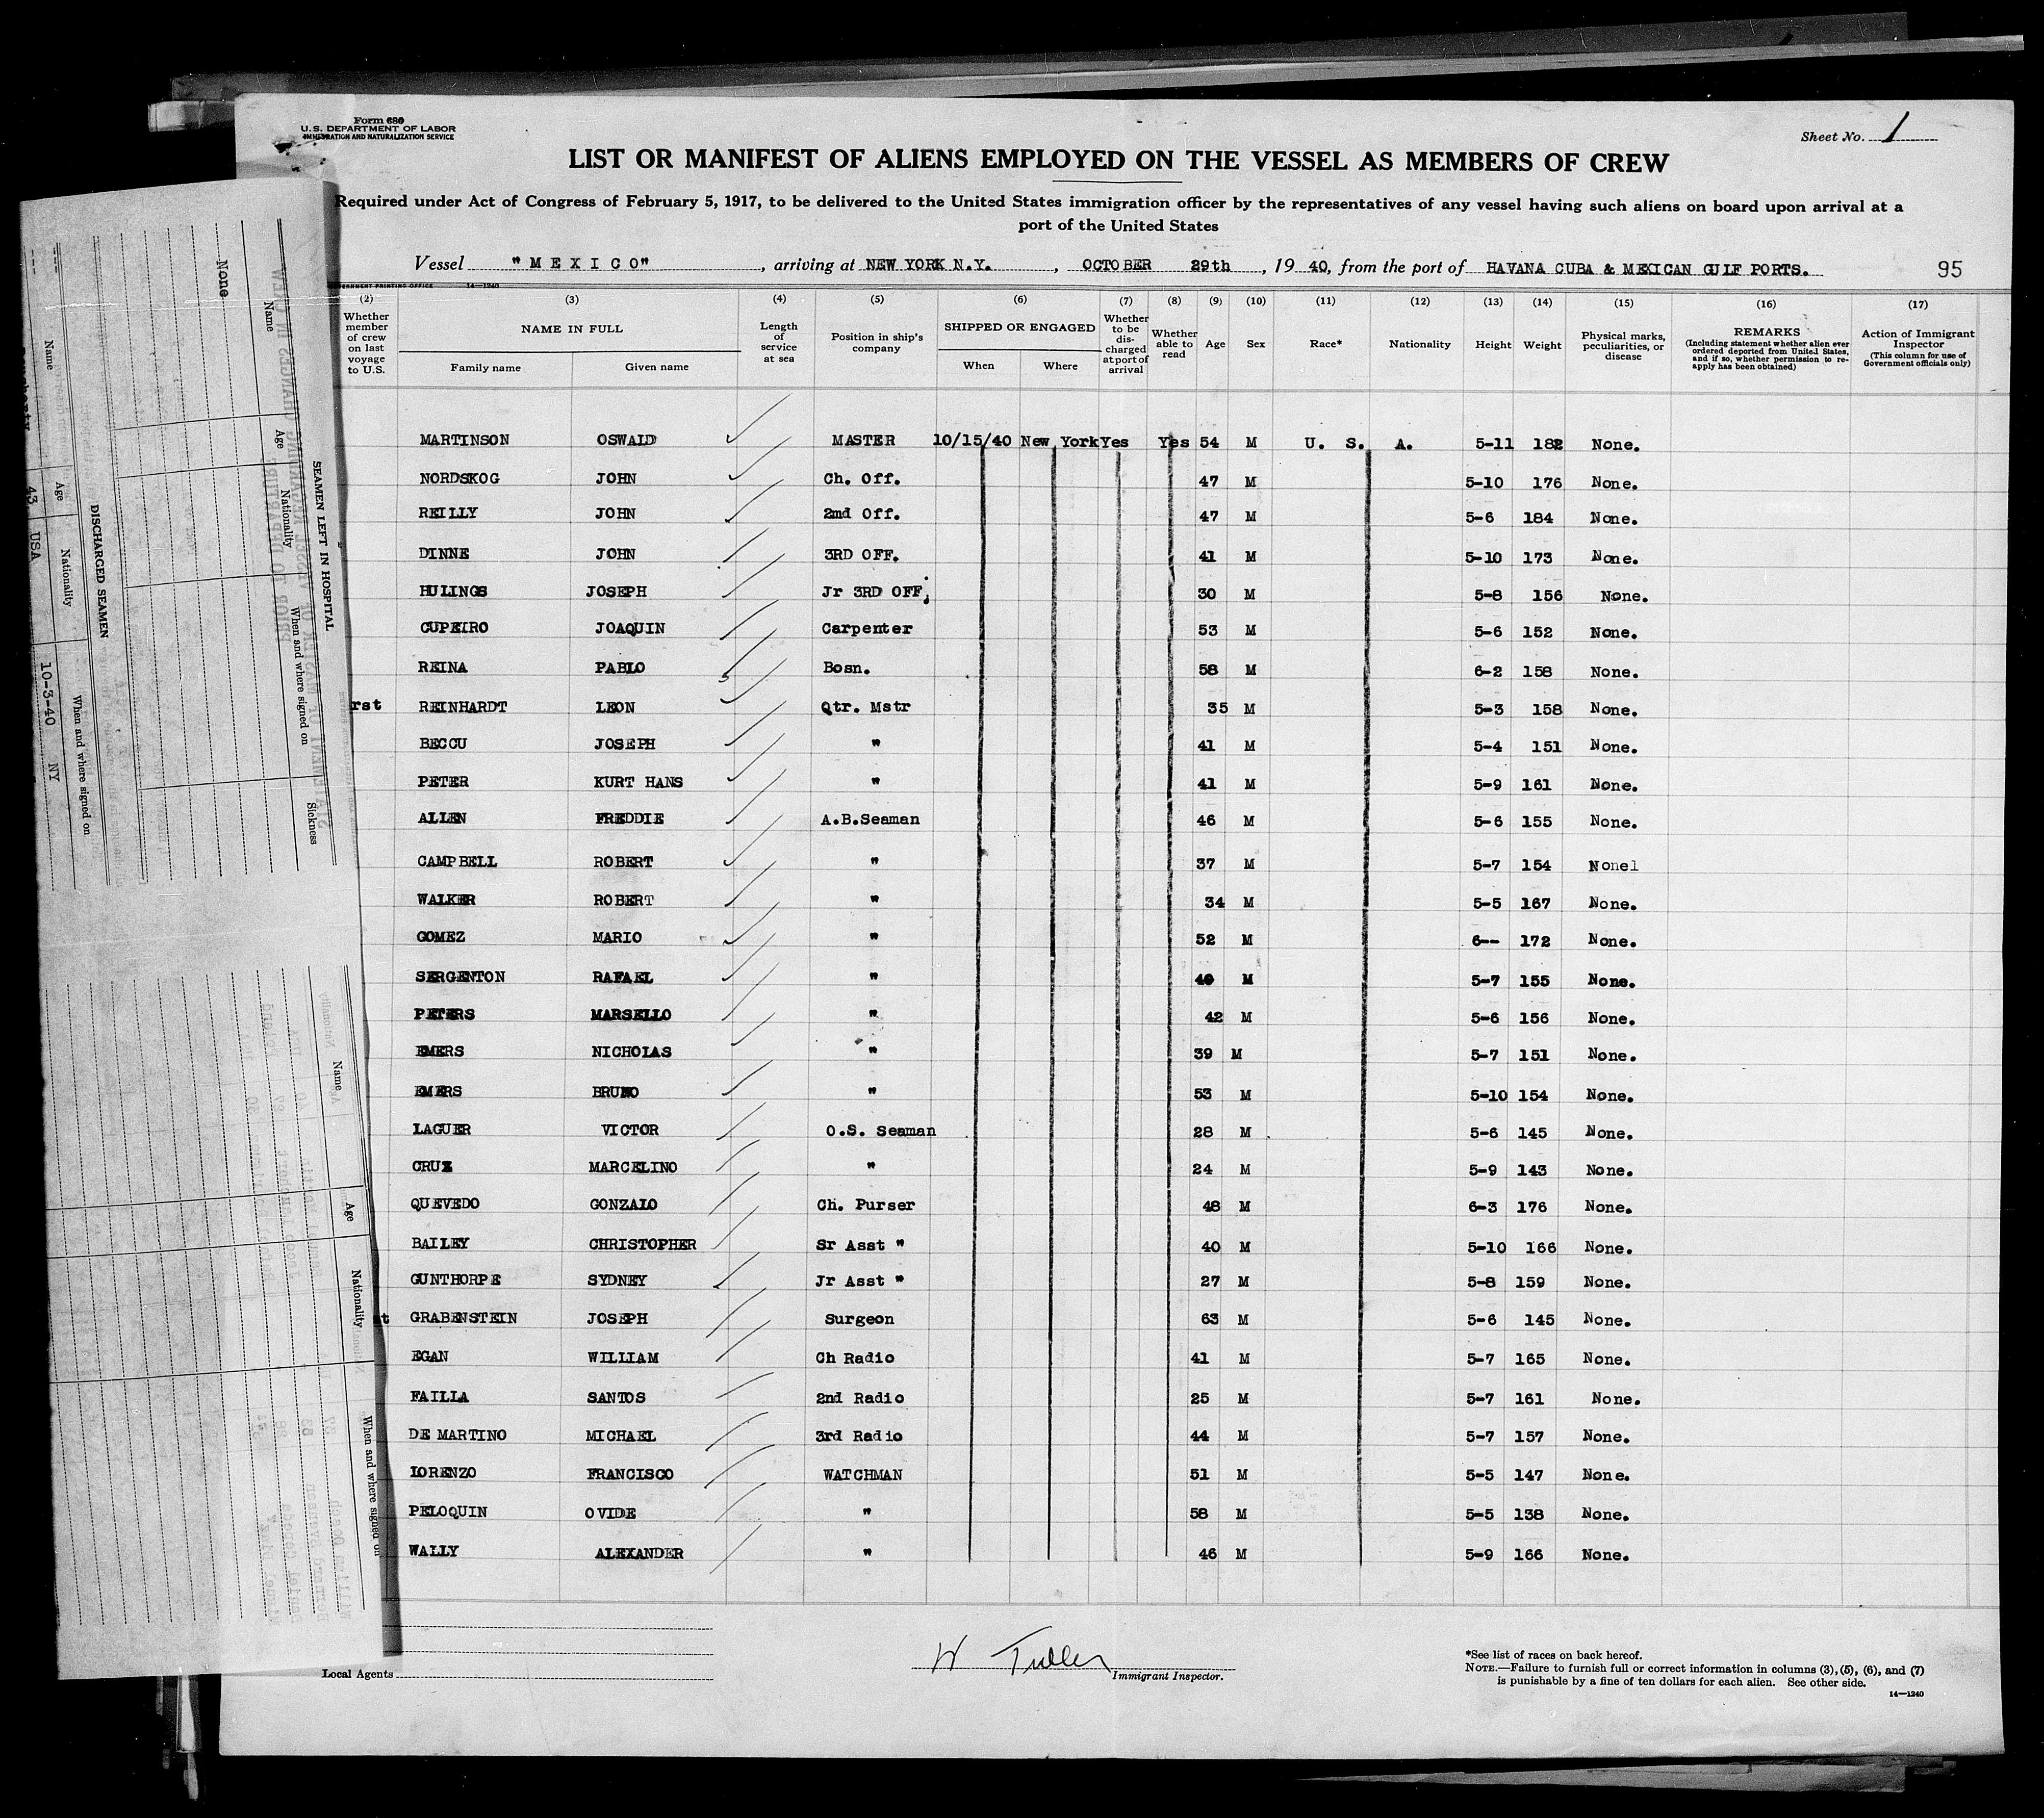 Form 680
U.S. DEPARTMENT OF LABOR
IMMIGRATION AND NATURALIZATION SERVICE
Sheet No. 1
LIST OR MANIFEST OF ALIENS EMPLOYED ON THE VESSEL AS MEMBERS OF CREW
Required under Act of Congress of February 5, 1917, to be delivered to the United States immigration officer by the representatives of any vessel having such aliens on board upon arrival at a
port of the United States
Vessel "MEXICO", arriving at NEW YORK N.Y., OCTOBER 29th, 19 40, from the port of HAVANA CUBA & MEXICAN GULF PORTS. 95
14—1240
(2) (3) (4) (5) (6) (7) (8) (9) (10) (11) (12) (13) (14) (15) (16) (17)
Whether member of crew on last voyage to U.S.
NAME IN FULL
Family name Given name
Length of service at sea
Position in ship's company
SHIPPED OR ENGAGED
When Where
Whether to be discharged at port of arrival
Whether able to read
Age
Sex
Race*
Nationality
Height
Weight
Physical marks, peculiarities, or disease
REMARKS
(Including statement whether alien ever ordered deported from United States, and if so, whether permission to reapply has been obtained)
Action of Immigrant Inspector
(This column for use of Government officials only)
MARTINSON OSWALD MASTER 10/15/40 New York Yes Yes 54 M U. S. A. 5-11 182 None.
NORDSKOG JOHN Ch. Off. 47 M 5-10 176 None.
REILLY JOHN 2nd Off. 47 M 5-6 184 None.
DINNE JOHN 3RD OFF. 41 M 5-10 173 None.
HULINGS JOSEPH Jr 3RD OFF. 30 M 5-8 156 None.
CUPEIRO JOAQUIN Carpenter 53 M 5-6 152 None.
REINA PABLO Bosn. 58 M 6-2 158 None.
rst REINHARDT LEON Qtr. Mstr 35 M 5-3 158 None.
BECCU JOSEPH " 41 M 5-4 151 None.
PETER KURT HANS " 41 M 5-9 161 None.
ALLEN FREDDIE A.B.Seaman 46 M 5-6 155 None.
CAMPBELL ROBERT " 37 M 5-7 154 Nonel
WALKER ROBERT " 34 M 5-5 167 None.
GOMEZ MARIO " 52 M 6-- 172 None.
SERGENTON RAFAEL " 40 M 5-7 155 None.
PETERS MARSELLO " 42 M 5-6 156 None.
EMERS NICHOLAS " 39 M 5-7 151 None.
EMERS BRUNO " 53 M 5-10 154 None.
LAGUER VICTOR O.S. Seaman 28 M 5-6 145 None.
CRUZ MARCELINO " 24 M 5-9 143 None.
QUEVEDO GONZALO Ch. Purser 48 M 6-3 176 None.
BAILEY CHRISTOPHER Sr Asst " 40 M 5-10 166 None.
GUNTHORPE SYDNEY Jr Asst " 27 M 5-8 159 None.
t GRABENSTEIN JOSEPH Surgeon 63 M 5-6 145 None.
EGAN WILLIAM Ch Radio 41 M 5-7 165 None.
FAILLA SANTOS 2nd Radio 25 M 5-7 161 None.
DE MARTINO MICHAEL 3rd Radio 44 M 5-7 157 None.
LORENZO FRANCISCO WATCHMAN 51 M 5-5 147 None.
PELOQUIN OVIDE " 58 M 5-5 138 None.
WALLY ALEXANDER " 46 M 5-9 166 None.
Local Agents
W Tuller
Immigrant Inspector.
*See list of races on back hereof.
NOTE.—Failure to furnish full or correct information in columns (3), (5), (6), and (7)
is punishable by a fine of ten dollars for each alien. See other side.
14—1240
SEAMEN LEFT IN HOSPITAL
Name Age Nationality When and where signed on Sickness
None
DISCHARGED SEAMEN
Name Age Nationality When and where signed on
43 USA 10-3-40 NY
Name Age Nationality When and where signed on